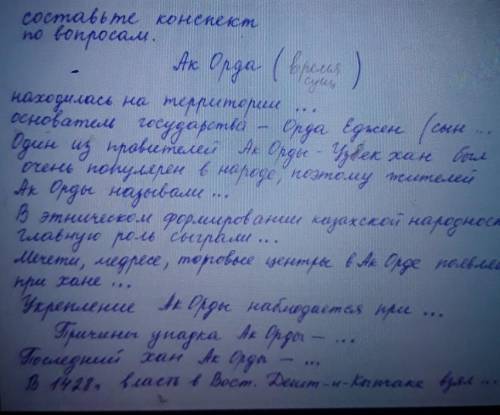 составьте конспект
по вопросам.
Ак Орда (время
сущ)
находилась на территории ...
основатель государства - Орда Еджен (сын ...
Один из правителей Ак Орды - Узбек хан был
очень популярен в народе, поэтому жителей
Ак Орды называли ...
В этническом формировании казахской народност
главную роль сыграли ...
Мечети, медресе, торговые центры в Ак Орде появле
при хане ...
Укрепление Ак Орды наблюдается при ...
Причины упадка Ак Орды - ...
Последний хан Ак Орды - ...
В 1428г власть в Вост. Дешт-и-Кыпчаке взял ...